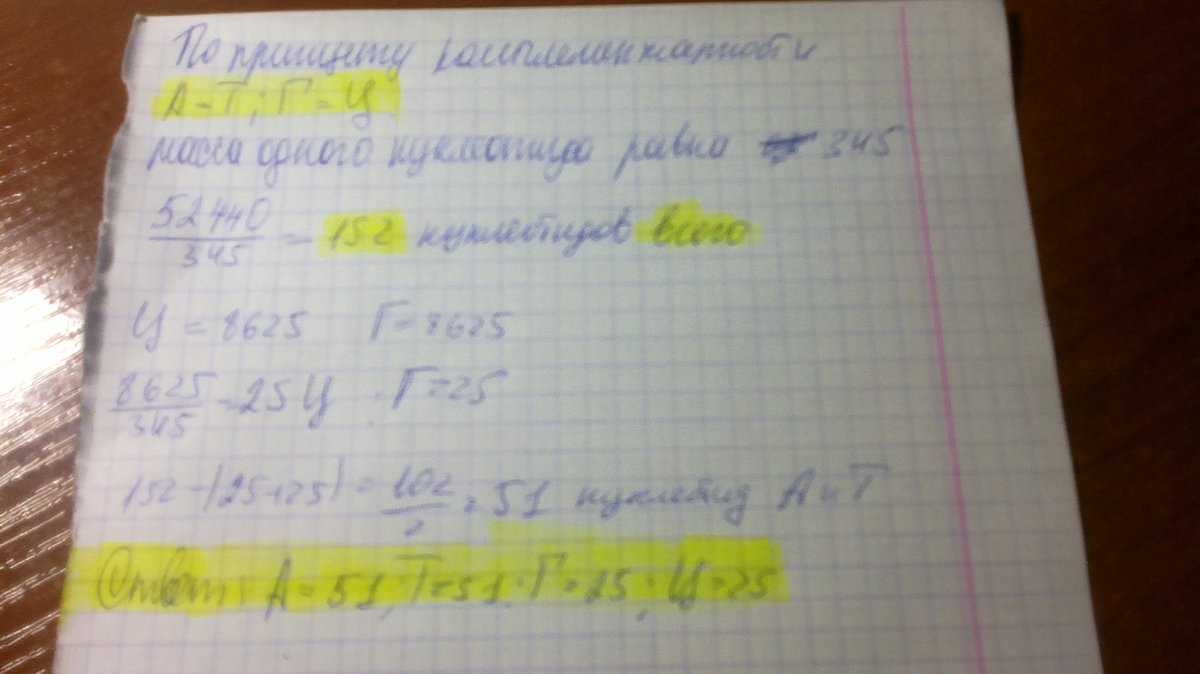 По принципу комплементарности
А=Т; Г=Ц.
масса одного нуклеотида равна 345
52440/345 = 152 нуклеотидов всего
Ц = 8625 Г=8625
8625/345 = 25 Ц Г=25
152-(25+25) = 102/2 = 51 нуклетид А и Т
Ответ: А=51; Т=51; Г=25; Ц=25